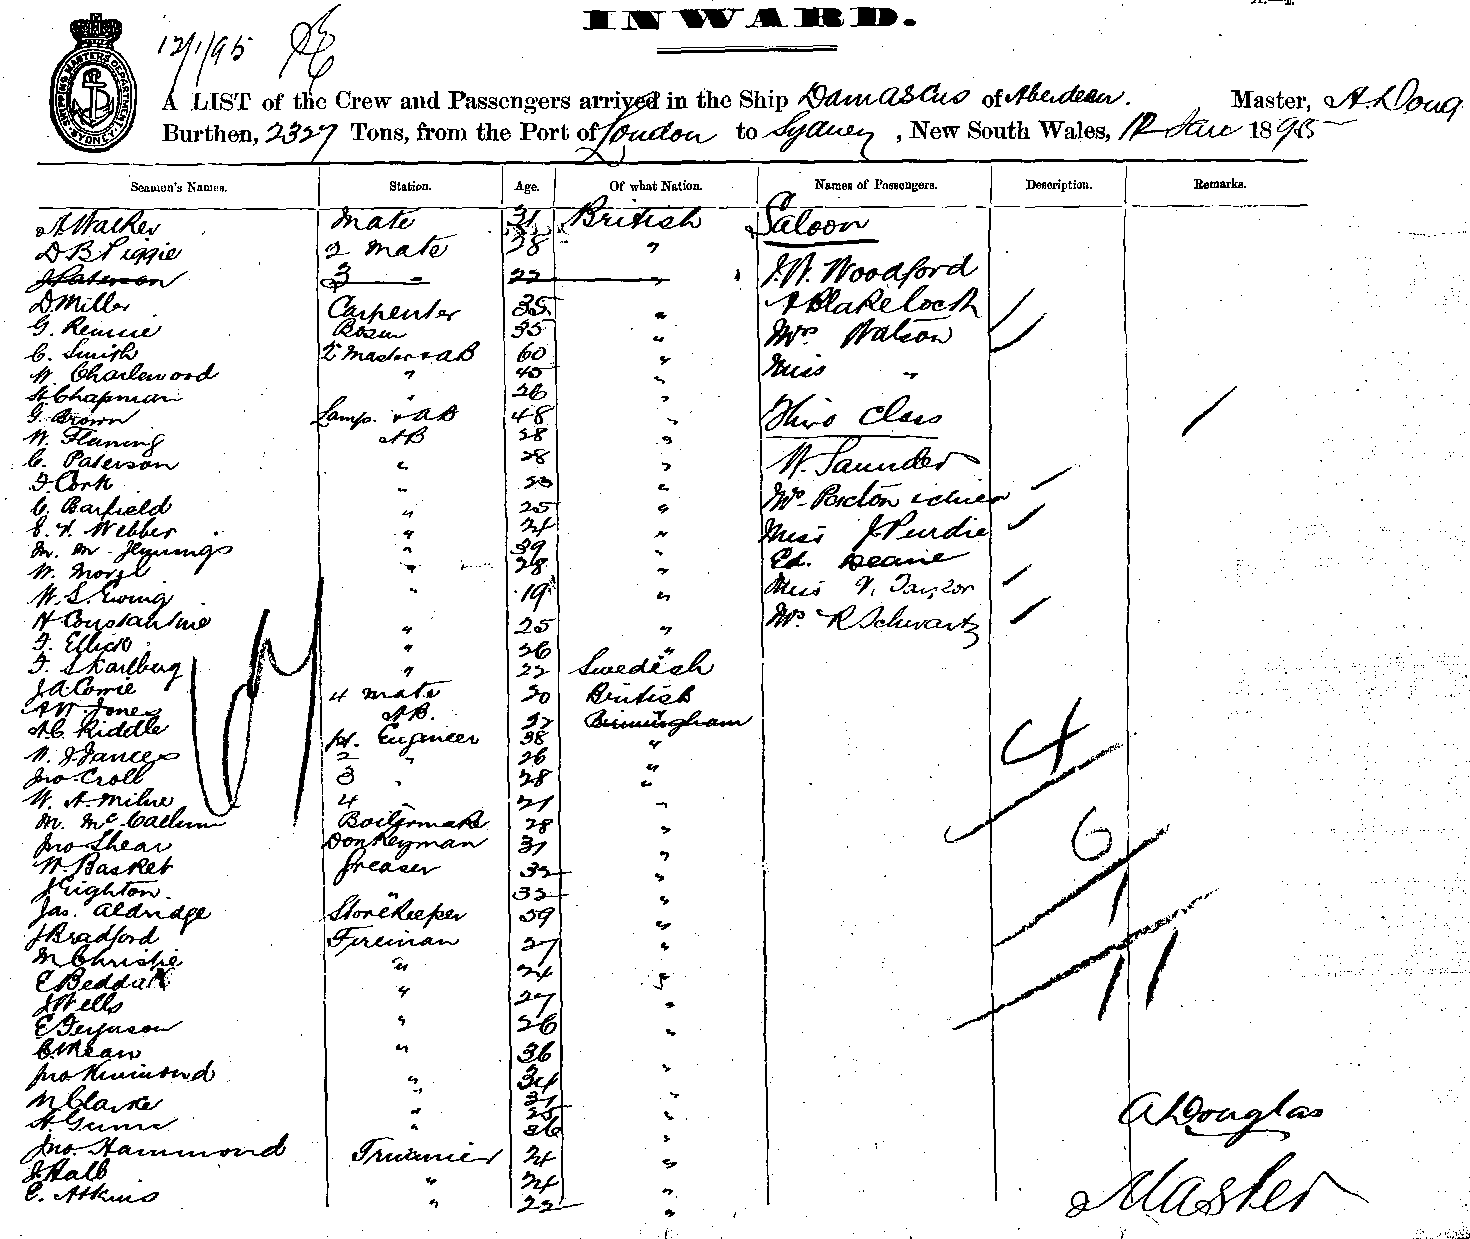 INWARD.
12/1/95
A LIST of the Crew and Passengers arrived in the Ship Damascus of Aberdeen. Master, A. Doug
Burthen, 2327 Tons, from the Port of London to Sydney, New South Wales, 12 Jan 1895
Seamen's Names. Station. Age. Of what Nation. Names of Passengers. Description. Remarks.
A Walker Mate 31 British Saloon
D B Piggie 2 Mate 28 "
J Paterson 3 " 22 " J. W. Woodford
D Miller Carpenter 35 " A Blakelock
G. Rennie Bosun 35 " Mrs Watson
C. Smith 2 Master & AB 60 "
W. Charlewood " 45 " Miss "
H Chapman " 26 "
G. Brown Lamp. & AB 48 " Third Class
W. Fleming AB 28 "
C. Paterson " 28 " W. Saunders
F. Cork " 23 "
C. Barfield " 25 " Mrs Paxton
E. H. Webber " 24 " Miss J Purdie
M. M. Jennings " 39 " Ed. Deane
W. " 28 "
W. S. Ewing " 19 " Miss Taylor
H Constantine " 25 " Mr. R Schwartz
F. Elliott " 26 "
F. Skarlberg " 22 Swedish
J A Cowie 4 Mate 20 British
A W. Jones AB. 22 Birmingham
A C Riddle 1st. Engineer 38 "
W. J. 2 " 26 "
Jno Croll 3 " 28 "
W. A. Milne 4 21 "
M. McCallum Boilermaker 28 "
Jno Shear Donkeyman 31 "
W. Basket Greaser 32 "
J Eighton " 32 "
Jas. Aldridge Storekeeper 39 "
J Bradford Fireman 27 "
M Christie " 24 "
E Beddall " 24 "
J Wells " 27 "
E Ferguson " 26 "
" 36 "
Jno Kinimond " 34 "
W Clarke " 31 "
A. Gunn " 36 "
Jno. Hammond Trimmer 24 "
J. Hall " 24 "
E. Atkins " 22 "
4
6
1
11
A Douglas
Master